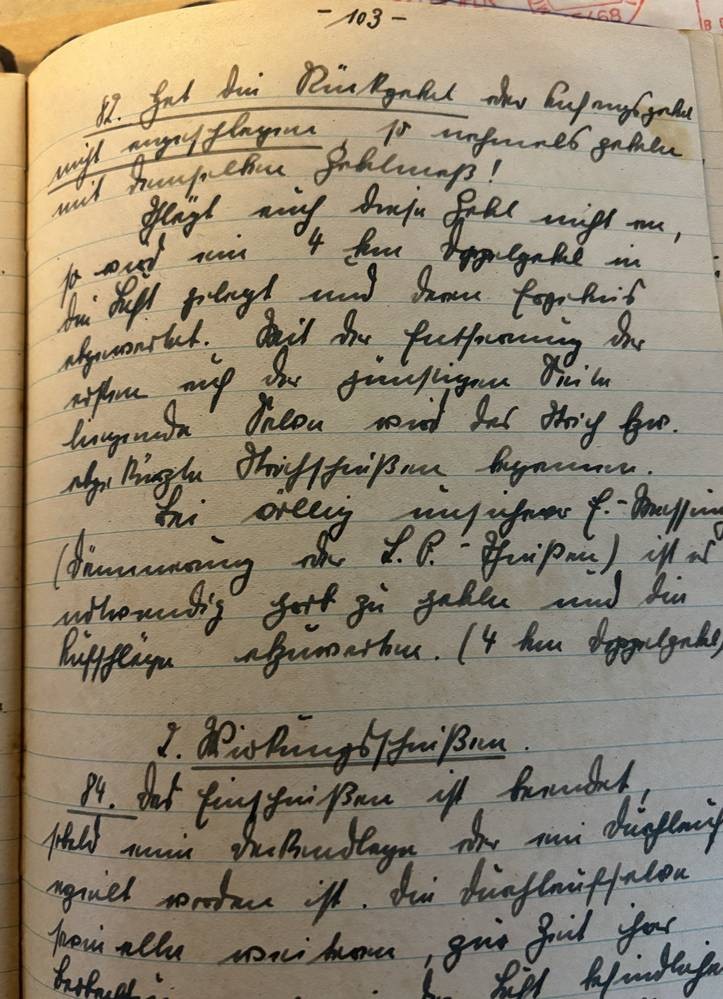 - 103 -
82. Hat die Rückgabel oder Aufangsgabel
nicht angeschlagen, so nochmals gabeln
mit demselben Gabelmaß!
Schlägt auch diese Gabel nicht an,
so wird eine 4 hm Doppelgabel in
die Luft gelegt und deren Ergebnis
abgewartet. Mit der Entfernung der
ersten auf der günstigen Seite
liegende Salve wird das Strich bzw.
abgekürzte Strichschießen begonnen.
Bei völlig unsicherer E.-Messung
(Dämmerung oder L. P.-Schießen) ist es
notwendig grob zu gabeln und die
Aufschläge abzuwarten. (4 hm Doppelgabel)
2. Wirkungsschießen.
84. Das Einschießen ist beendet,
sobald eine deckendlage oder ein Durchlauf
erzielt worden ist. Die Durchlaufsalve
sowie alle weiteren, zur Zeit ihrer
der Luft befindlichen